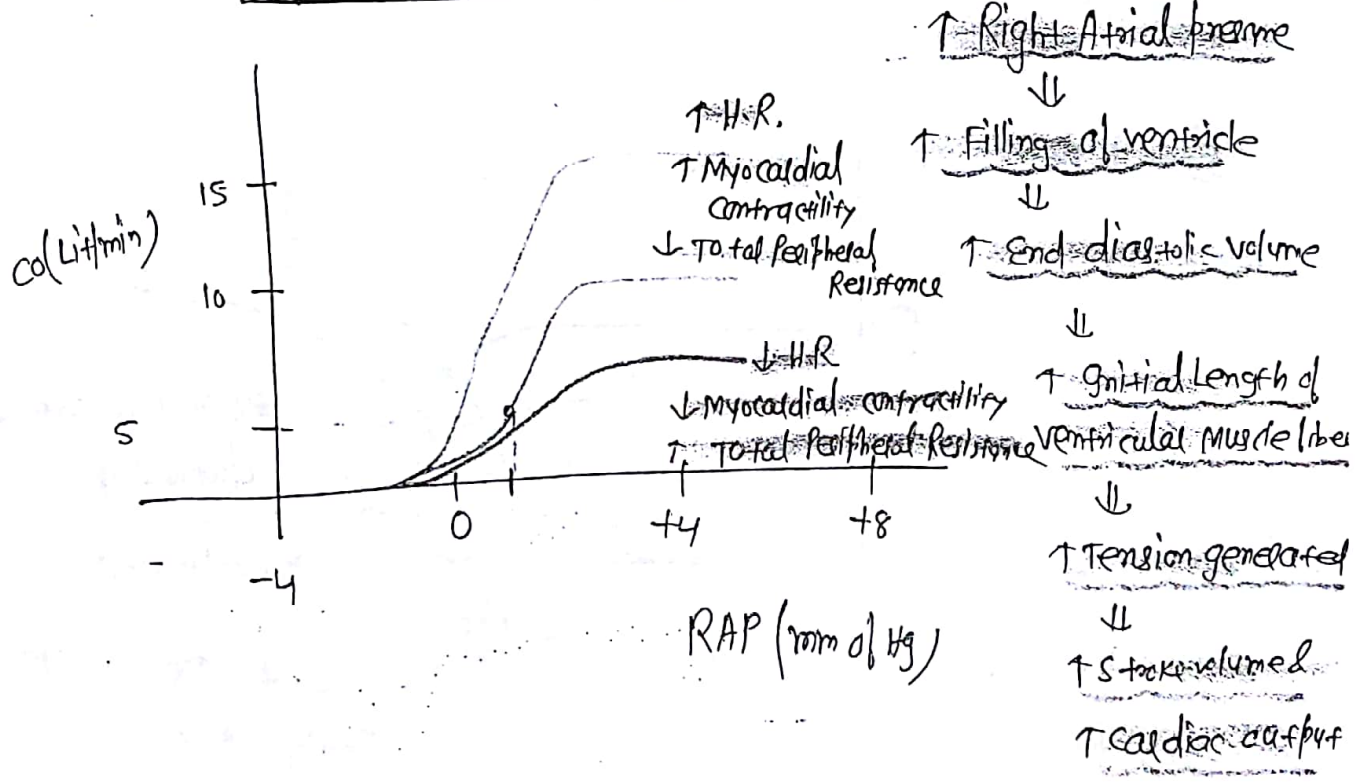 ↑ Right Atrial pressure
⇓
↑ Filling of ventricle
⇓
↑ End diastolic volume
⇓
↑ Initial Length of
ventricular Muscle fiber
⇓
↑ Tension generated
⇓
↑ Stroke volume &
↑ Cardiac output
CO (Lit/min)
15
10
5
↑ H.R.
↑ Myocardial
Contractility
↓ Total Peripheral
Resistance
↓ H.R
↓ Myocardial contractility
↑ Total Peripheral Resistance
-4
0
+4
+8
RAP (mm of Hg)